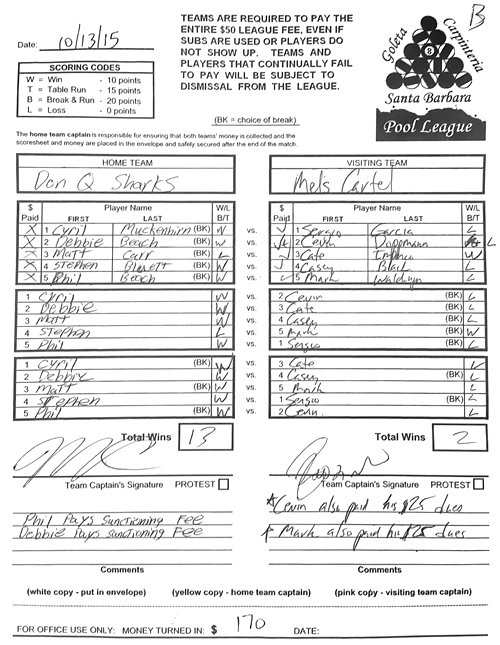 Date: 10/13/15
SCORING CODES
W = Win - 10 points
T = Table Run - 15 points
B = Break & Run - 20 points
L = Loss - 0 points
TEAMS ARE REQUIRED TO PAY THE
ENTIRE $50 LEAGUE FEE, EVEN IF
SUBS ARE USED OR PLAYERS DO
NOT SHOW UP. TEAMS AND
PLAYERS THAT CONTINUALLY FAIL
TO PAY WILL BE SUBJECT TO
DISMISSAL FROM THE LEAGUE.
(BK = choice of break)
B
Goleta
Carpinteria
8
Santa Barbara
Pool League
The home team captain is responsible for ensuring that both teams' money is collected and the
scoresheet and money are placed in the envelope and safely secured after the end of the match.
HOME TEAM
Don Q Sharks
VISITING TEAM
Mel's Cartel
$ Paid Player Name FIRST LAST W/L B/T
$ Paid Player Name FIRST LAST W/L B/T
X 1 Cyril Muckenhirn (BK) W vs. 1 Sergio Garcia L
X 2 Debbie Beach (BK) W vs. 2 Cevin L
X 3 Matt Carr (BK) L vs. 3 Cate W
X 4 Stephen (BK) W vs. 4 Casey L
X 5 Phil Beach (BK) W vs. 5 Mark L
1 Cyril W vs. 2 Cevin (BK) L
2 Debbie W vs. 3 Cate (BK) L
3 Matt W vs. 4 Casey (BK) L
4 Stephen L vs. 5 Mark (BK) W
5 Phil W vs. 1 Sergio (BK) L
1 Cyril (BK) W vs. 3 Cate L
2 Debbie W vs. 4 Casey (BK) L
3 Matt (BK) W vs. 5 Mark L
4 Stephen W vs. 1 Sergio (BK) L
5 Phil (BK) W vs. 2 Cevin L
Total Wins 13
Total Wins 2
Team Captain's Signature PROTEST
Team Captain's Signature PROTEST
Phil Pays Sanctioning Fee
Debbie Pays Sanctioning Fee
Cevin also paid his $25 dues
Mark also paid his $25 dues
Comments
Comments
(white copy - put in envelope) (yellow copy - home team captain) (pink copy - visiting team captain)
FOR OFFICE USE ONLY: MONEY TURNED IN: $ 170 DATE: